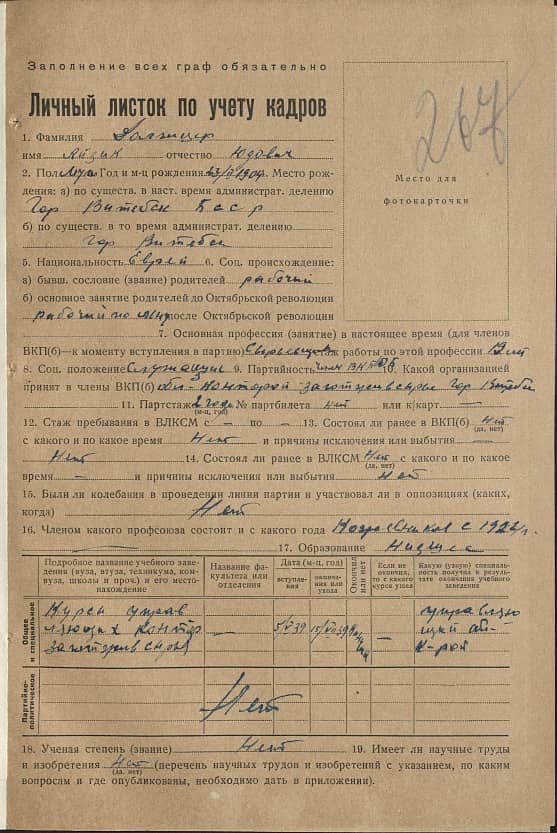 Заполнение всех граф обязательно
Личный листок по учету кадров
267
Место для
фотокарточки
1. Фамилия
имя Айзик отчество Юдович
2. Пол Муж Год и м-ц рождения 1904 Место рож-
дения: а) по существ. в наст. время административ. делению
Гор Витебск Бсср
б) по существ. в то время административ. делению
Гор Витебск
5. Национальность Еврей 6. Соц. происхождение:
а) бывш. сословие (звание) родителей рабочий
б) основное занятие родителей до Октябрьской революции
рабочий по после Октябрьской революции
7. Основная профессия (занятие) в настоящее время (для членов
ВКП(б)—к моменту вступления в партию) работы по этой профессии
8. Соц. положение Служащий 9. Партийность член ВКП(б) Какой организацией
принят в члены ВКП(б) Конторой заготживсырье Гор Витебск
11. Партстаж 2 года № партбилета нет или к/карт —
(м-ц, год)
12. Стаж пребывания в ВЛКСМ с — по — 13. Состоял ли ранее в ВКП(б) Нет
(да, нет)
с какого и по какое время Нет и причины исключения или выбытия —
Нет 14. Состоял ли ранее в ВЛКСМ Нет с какого и по какое
(да, нет)
время — и причины исключения или выбытия Нет
15. Были ли колебания в проведении линии партии и участвовал ли в оппозициях (каких,
когда) Нет
16. Членом какого профсоюза состоит и с какого года
17. Образование Низшее
Подробное название учебного заве-
дения (вуза, втуза, техникума, ком-
вуза, школы и проч.) и его место-
нахождение
Название фа-
культета или
отделения
Дата (м-ц, год)
вступле-
ния
оконча-
ния или
ухода
Окончил
или нет
Если не
окончил,
то с какого
курса ушел
Какую (узкую) специаль-
ность получил в резуль-
тате окончания учебного
заведения
Общее
и специальное
Курсы управ
ляющих контор
заготживсырья
—
5/V 39
15/VII 39
—
управляю
щий
к-рой
Партийно-
политическое
Нет
18. Ученая степень (звание) Нет 19. Имеет ли научные труды
и изобретения Нет (перечень научных трудов и изобретений с указанием, по каким
(да, нет)
вопросам и где опубликованы, необходимо дать в приложении).